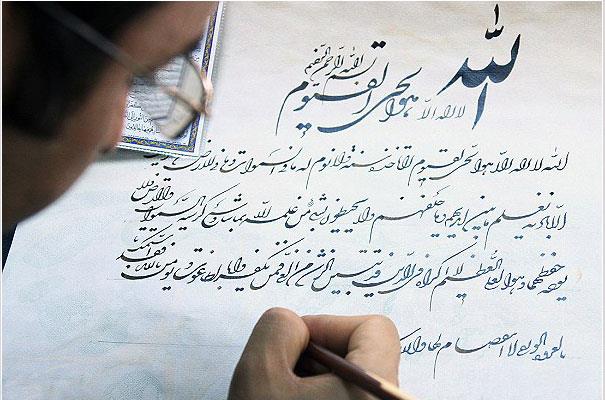 بسم الله الرحمن الرحیم
الله لا اله الا هو الحی القیوم
الله لا اله الا هو الحی القیوم لا تأخذه سنة و لا نوم له ما فی السموات و ما فی الارض
الا باذنه یعلم ما بین ایدیهم و ما خلفهم و لا یحیطون بشیء من علمه الا بما شاء وسع کرسیه السموات والارض ولا
یؤده حفظهما و هو العلی العظیم لا اکراه فی الدین قد تبین الرشد من الغی فمن یکفر بالطاغوت و یؤمن بالله فقد استمسک
بالعروة الوثقی لا انفصام لها والله